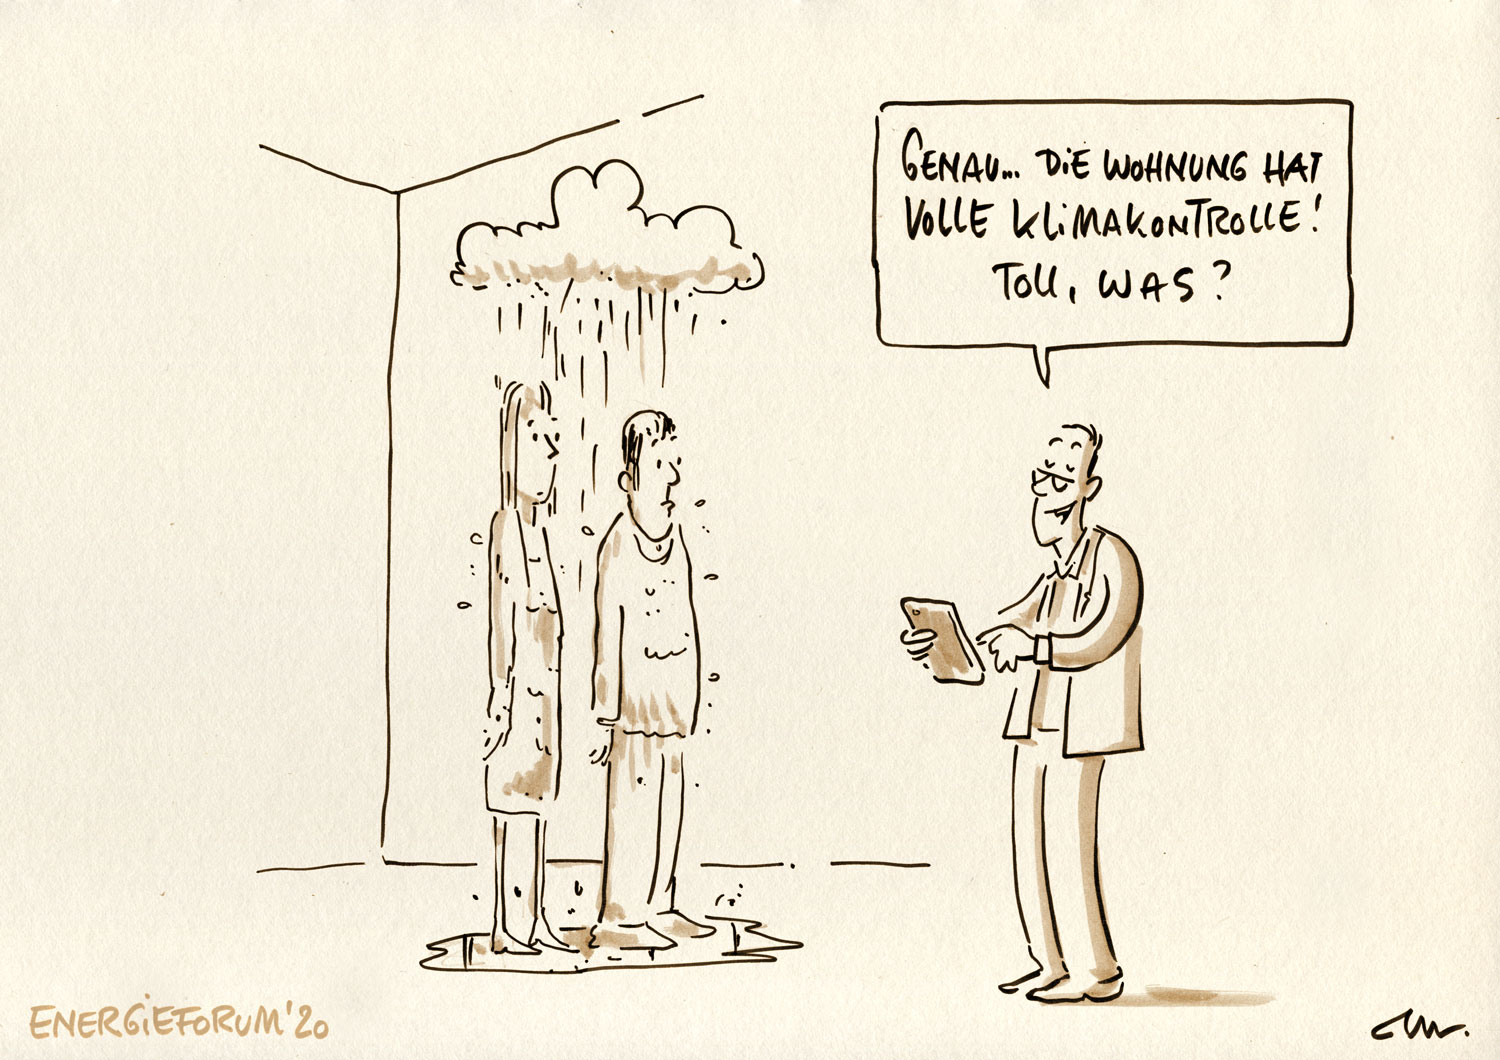 GENAU... DIE WOHNUNG HAT
VOLLE KLIMAKONTROLLE!
TOLL, WAS?
ENERGIEFORUM'20